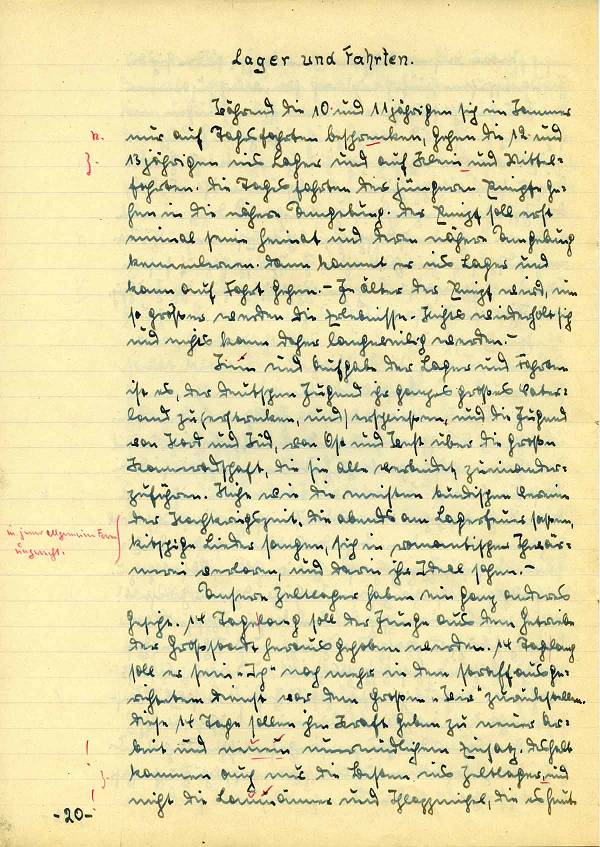 Lager und Fahrten.
Während die 10 und 11jährigen sich im Sommer
nur auf Tagesfahrten beschrencken, gehen die 12 und
13jährigen ins Lager und auf Klein und Mittel-
fahrten. Die Tagesfahrten der jüngeren Pimpfe ge-
hen in die nähere Umgebung. Der Pimpf soll erst
einmal seine Heimat und deren nähere Umgebung
kennenlernen. Dann kommt er ins Lager und
kann auf Fahrt gehen. – Je älter der Pimpf wird, um
so größer werden die Erlebnisse. Nichts wiederholt sich
und nichts kann daher langweilig werden. –
Sinn und Aufgabe der Lager und Fahrten
ist es, der deutschen Jugend ihr ganzes großes Vater-
land zu (erstrecken, und) erschliessen, und die Jugend
von Nord und Süd, von Ost und West über die große
Kameradschaft, die sie alle verbindet, zueinander-
zuführen. Nicht wie die meisten bündischen Vereine
der Nachkriegszeit, die abends am Lagerfeuer sassen,
kitschige Lieder sangen, sich in romantischer Schwär-
merei verloren, und darin ihr Ideal sahen. –
in jener allgemeinen Form
ungerecht.
Unsere Zeltlager haben ein ganz anderes
Gesicht. 14 Tage lang soll der Junge aus dem Getriebe
der Grosstadt herausgehoben werden. 14 Tage lang
soll er sein "Ich" noch mehr in dem straff ausge-
richteten Dienst vor dem großen "Wir" zurückstellen.
Diese 14 Tage sollen ihm Kraft geben zu neuer Ar-
beit und neuem unermüdlichen Einsatz. Deshalb
kommen auch nur die Besten ins Zeltlager, und
nicht die Laumänner und Schlappmichel, die es heute
-20-